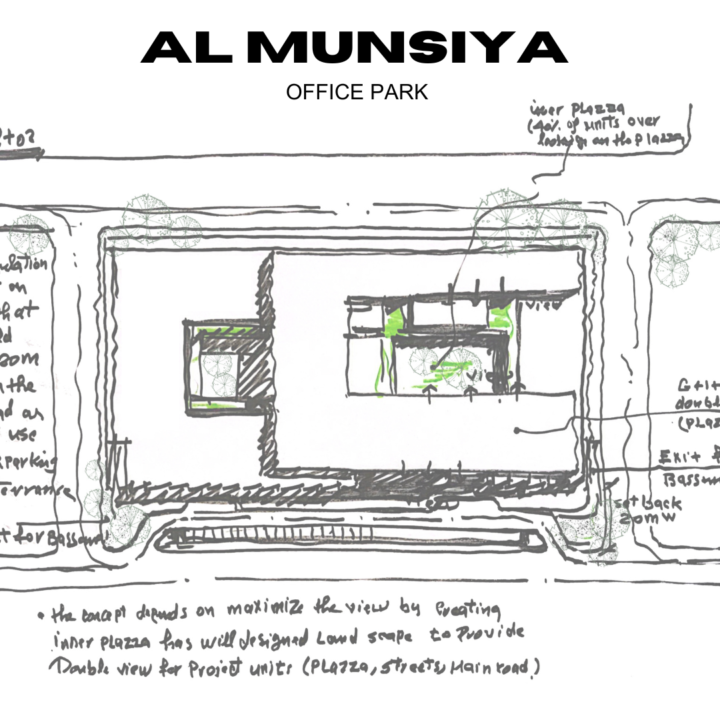 AL MUNSIYA
OFFICE PARK
inner plazza
(40% of units over
looking on the plazza
view
view
on
hat
zom
the
use
parking
Terrance
for Bassum
G+1+
doubl
(Plaz
Exit
Bassum
set back
20m W
• the concept depends on maximize the view by Creating
inner plazza has will designed Land scape to Provide
Double view for Project units (Plazza, streets, Main road)